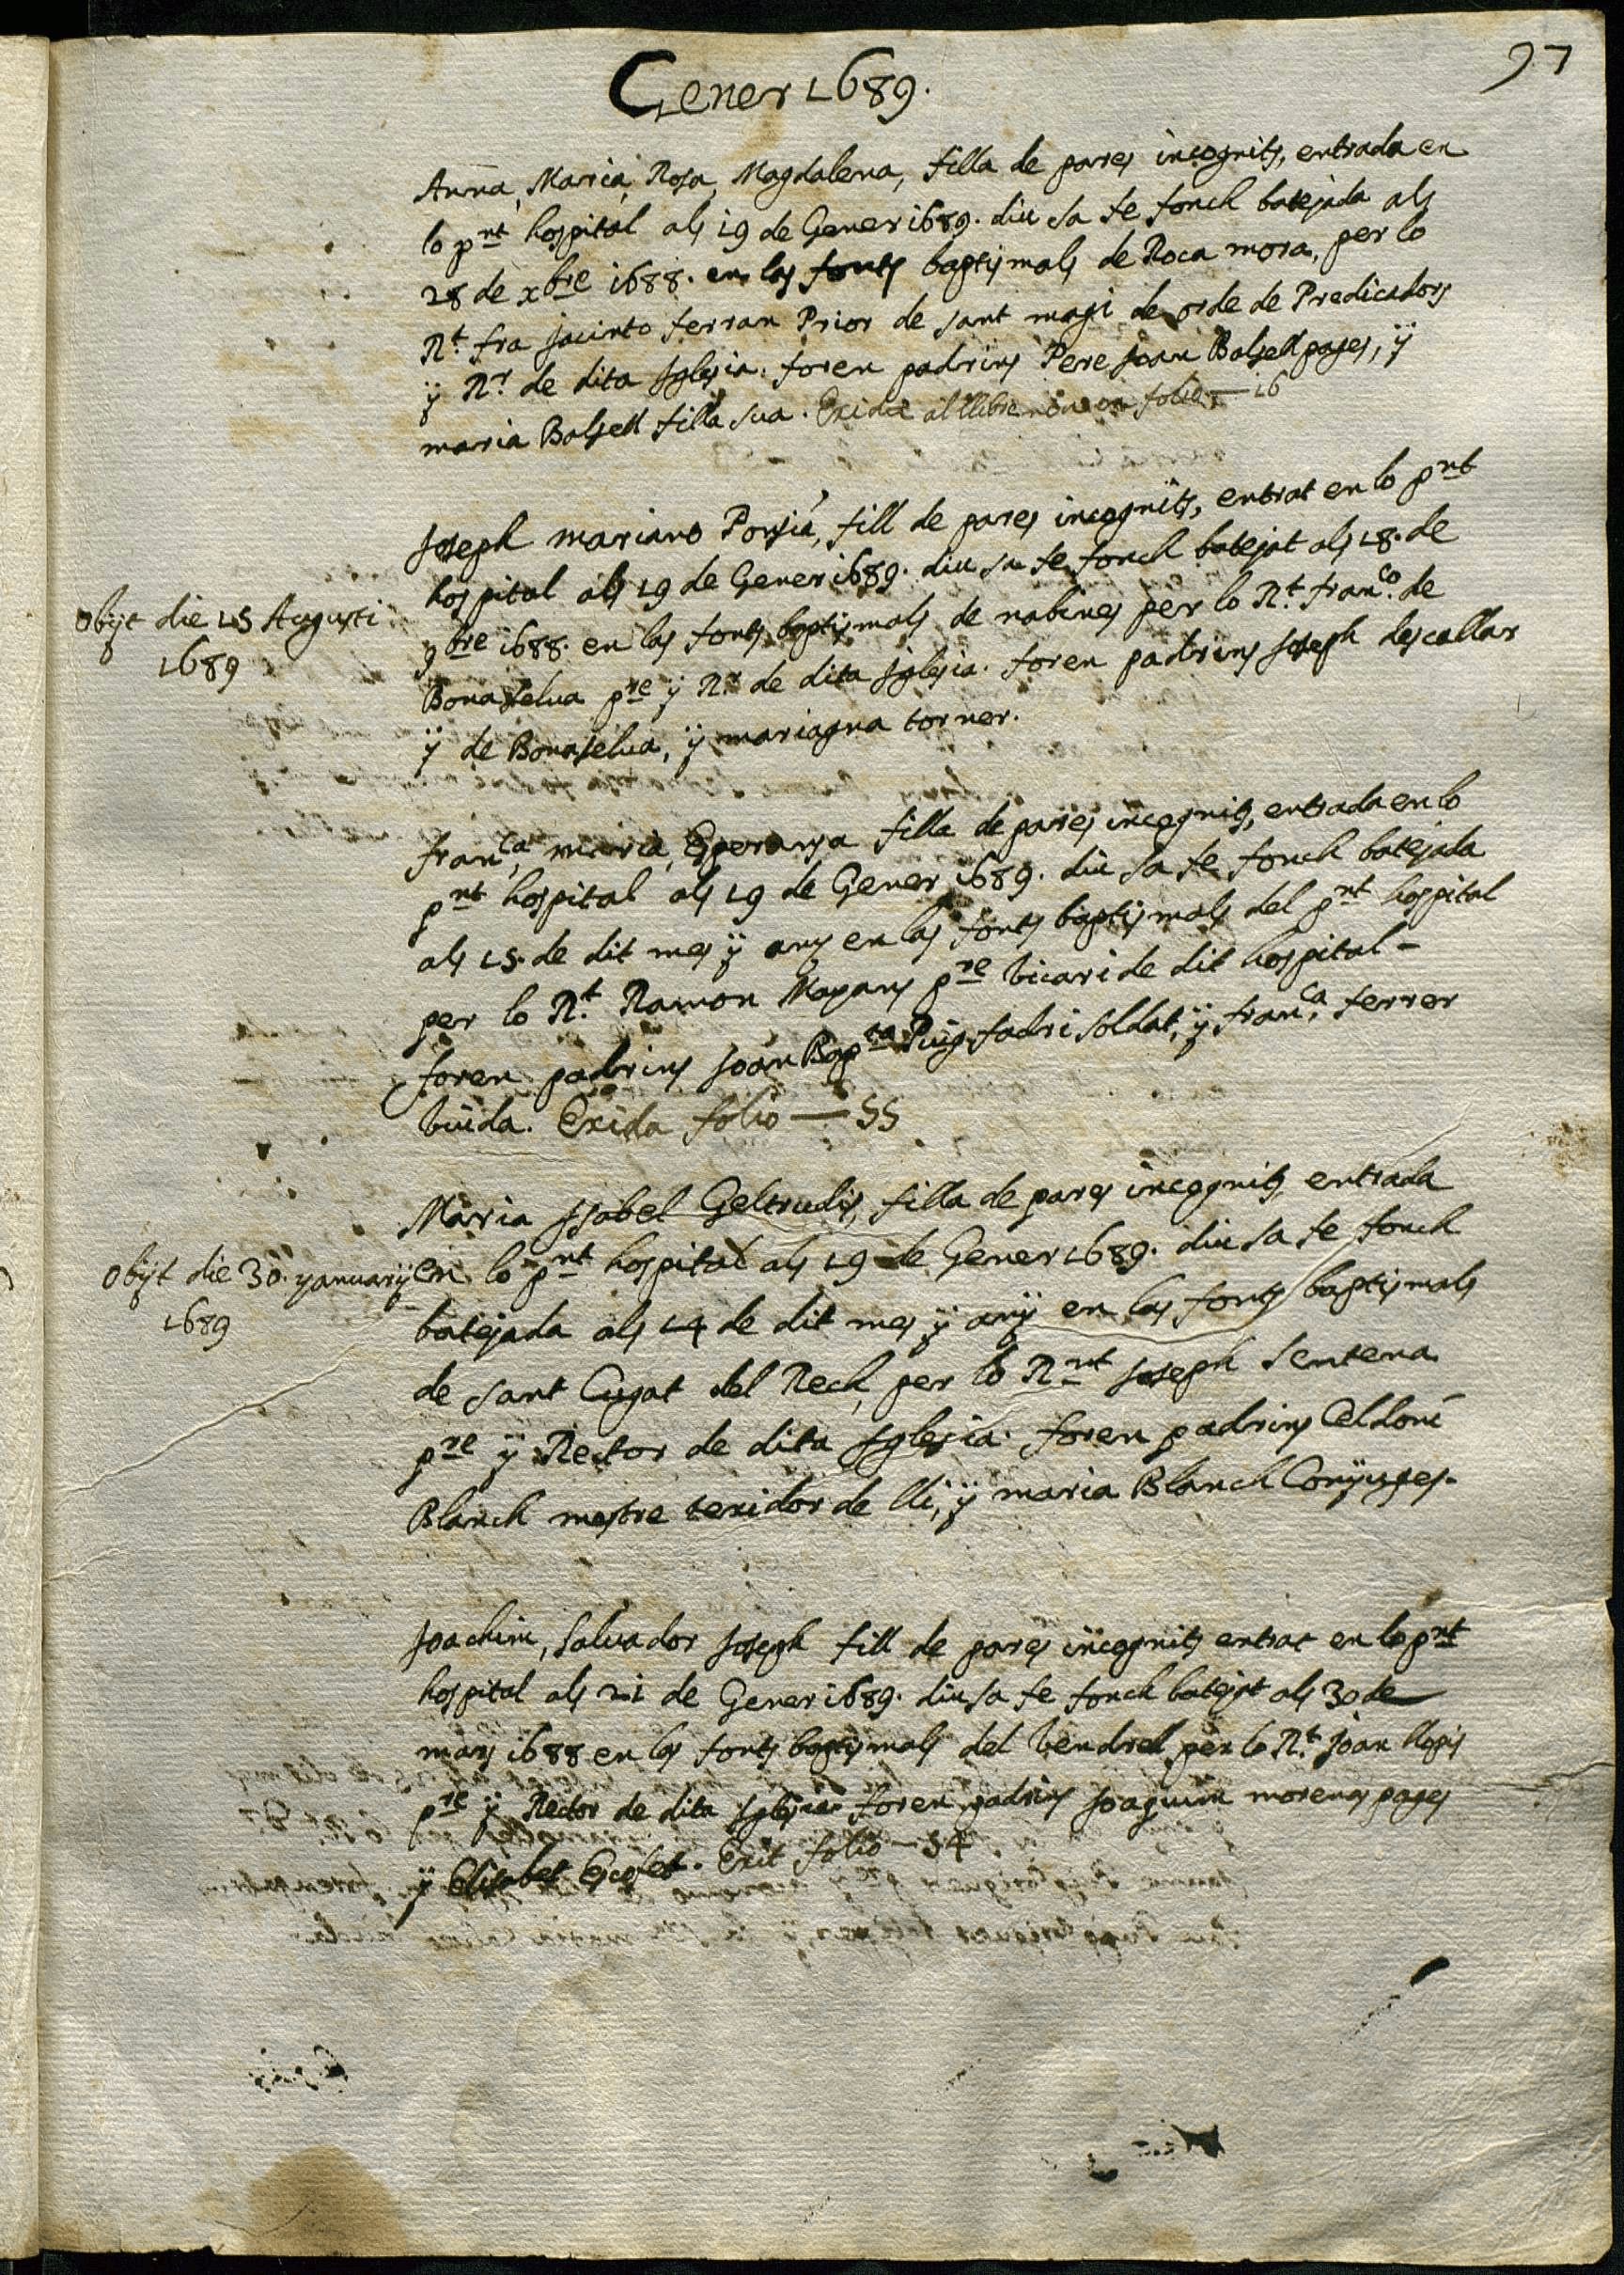 97
Gener 1689.
Anna, Maria, Rosa, Magdalena, filla de pares incognits, entrada en
lo pnt hospital als 19 de Gener 1689. diu sa fe fonch batejada als
28 de xbre 1688. en las fonts baptismals de Roca mora, per lo
Rt. fra Jacinto ferran Prior de sant magi de orde de Predicadors
ÿ Rr. de dita Iglesia. foren padrins Pere Joan Balsell pages, ÿ
maria Balsell filla sua. Exida al llibre nou en folio — 16
Joseph mariano Porsia, fill de pares incognits, entrat en lo pnt
hospital als 19 de Gener 1689. diu sa fe fonch batejat als 18. de
9bre 1688. en las fonts baptismals de nabines per lo Rt. franco. de
Bonaselua pre ÿ Rr. de dita Iglesia. foren padrins Joseph descallar
ÿ de Bonaselua, ÿ mariagna torner.
Obijt die 15 Augusti
1689
franca, maria, Esperansa filla de pares incognits, entrada en lo
pnt hospital als 19 de Gener 1689. diu sa fe fonch batejada
als 15. de dit mes ÿ anÿ en las fonts baptismals del pnt hospital
per lo Rt. Ramon Mayans pre vicari de dit hospital -
foren padrins Joan Bapta Puig fadri soldat, ÿ franca. ferrer
viuda. Exida folio — 55
Maria Isabel Geltrudis, filla de pares incognits, entrada
en lo pnt hospital als 19 de Gener 1689. diu sa fe fonch
batejada als 14 de dit mes ÿ anÿ en las fonts baptismals
de sant Cugat del Rech, per lo Rnt Joseph Sentena
pre ÿ Rector de dita Iglesia. foren padrins Celdoni
Blanch mestre texidor de lli, ÿ maria Blanch Conÿuges.
Obijt die 30. ÿanuarÿ
1689
Joachim, Saluador Joseph fill de pares incognits entrat en lo pnt
hospital als 21 de Gener 1689. diu sa fe fonch batejat als 30 de
mars 1688 en las fonts baptismals del Vendrell per lo Rt. Joan llopis
pre ÿ Rector de dita Iglesia. foren padrins Joaquim morenas pages
ÿ Elisabet Escofet. Exit folio — 54